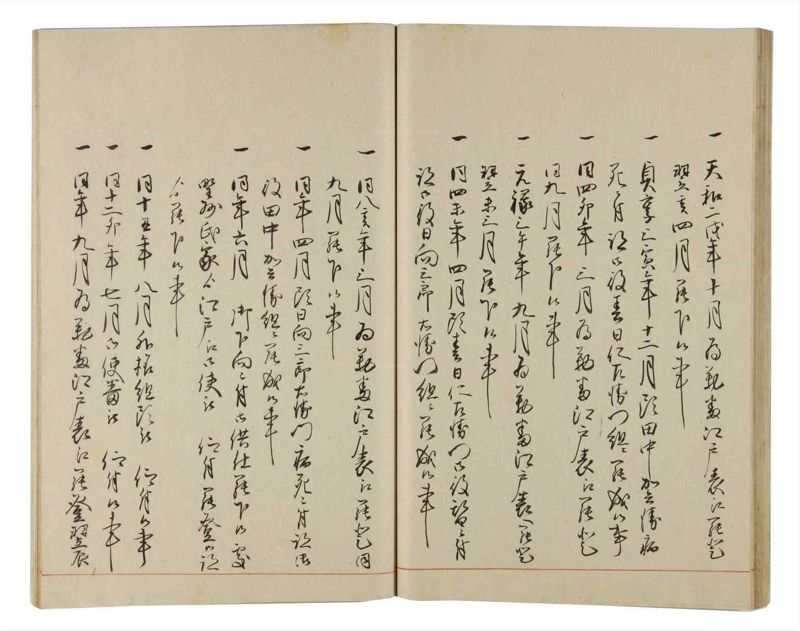 一 天和二戌年十月為勤番江戸表江罷登
翌亥四月罷下候事
一 貞享三寅年十二月頭田中加兵衛病
死ニ付跡御役春日仁左衛門組ニ罷成候事
一 同四卯年三月為勤番江戸表江罷登
同九月罷下候事
一 元禄三午年九月為勤番江戸表江罷登
翌未三月罷下候事
一 同四未年四月頭春日仁左衛門御役替ニ付
跡御役日向三郎右衛門組ニ罷成候事
一 同八亥年三月為勤番江戸表江罷登同
九月罷下候事
一 同年四月頭日向三郎右衛門病死ニ付跡御
役田中加兵衛組ニ罷成候事
一 同年六月 御下向ニ付御供仕罷下候処
江戸江御使者 仰付罷登
罷下候事
一 同十五年八月 組頭 仰付候事
一 同十二卯年七月御使番 仰付候事
一 同年九月為勤番江戸表江罷登翌辰